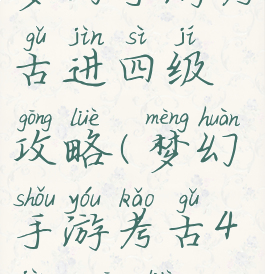 gǔ jìn sì jí
古进四级
gōng lüè mèng huàn
攻略(梦幻
shǒu yóu kǎo gǔ
手游考古4